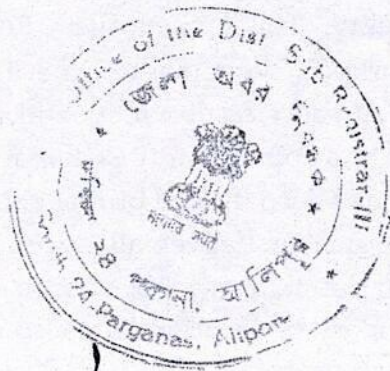 Office of the Dist. Sub Registrar-III
জেলা অবর নিবন্ধক
सत्यमेव जयते
২৪ পরগনা, আলিপুর
South 24-Parganas, Alipore